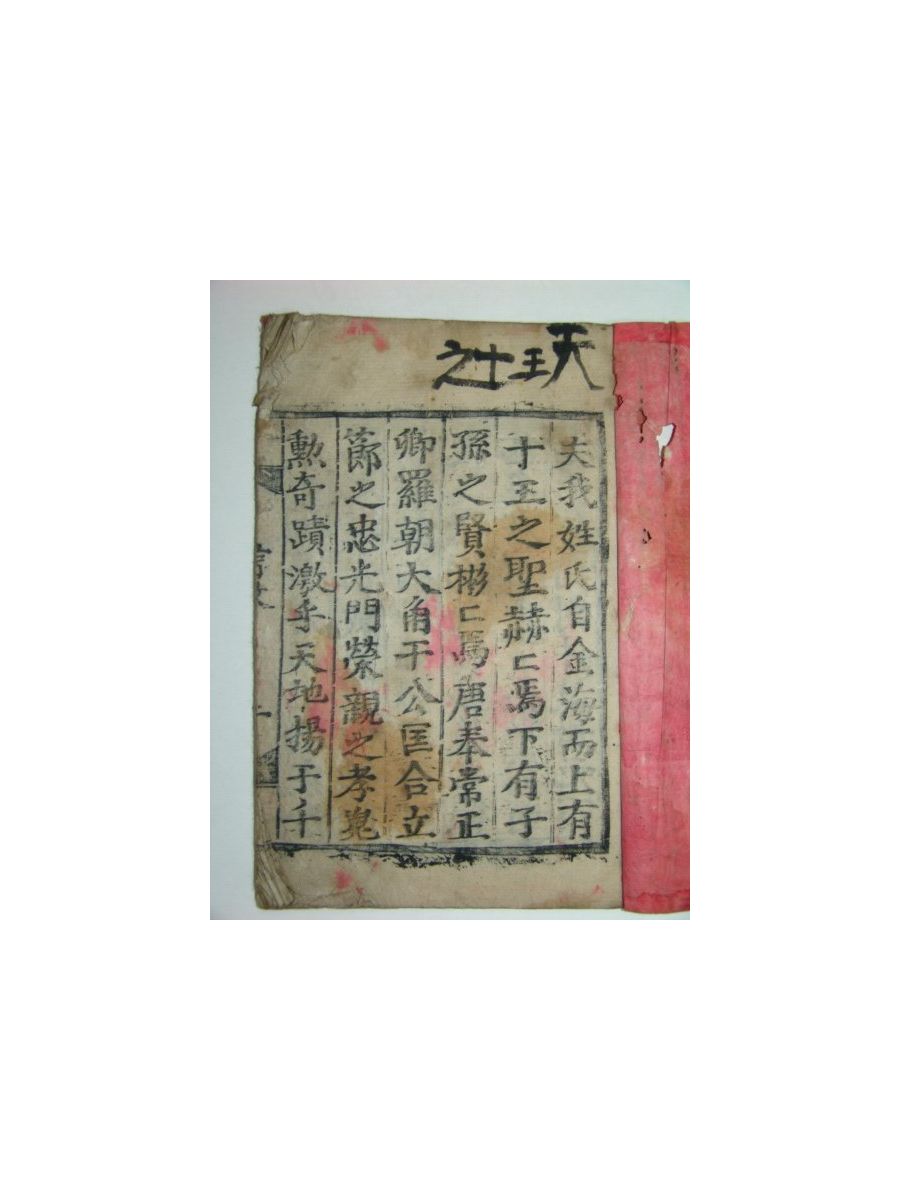 天王十之
夫我姓氏自金海而上有
十王之聖赫〻焉下有子
孫之賢彬〻焉唐奉常正
卿羅朝大角干公匡合立
節之忠光門榮親之孝嵬
勲奇蹟激乎天地揚于千